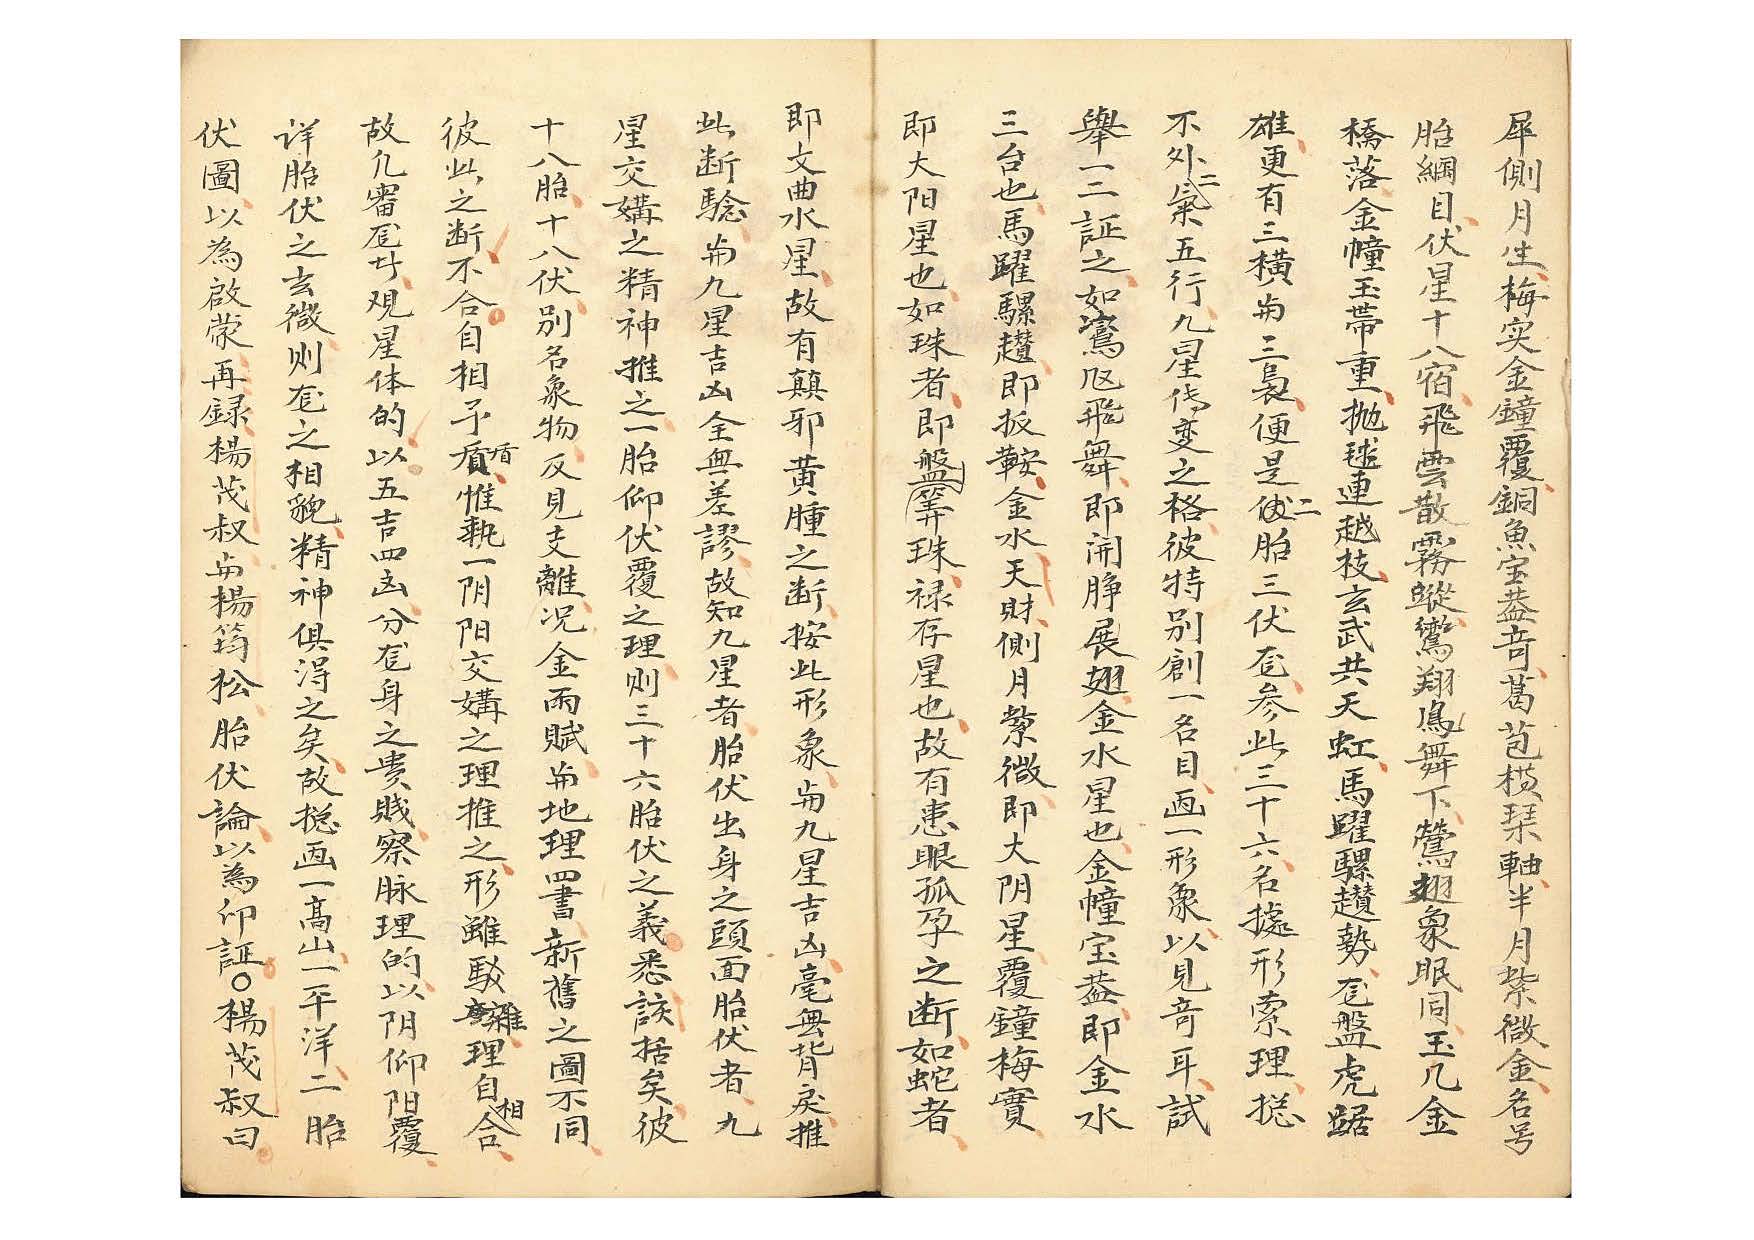 犀側月生、梅实金鐘覆、銅魚宝葢竒、葛苞横琹軸、半月紫微金、名号
胎綱目、伏星十八宿、飛雲散霧蹤、鸞翔鳳舞下、鶯翅象眠同、玉几金
橋落、金幢玉帯重、抛毬連越枝、玄武共天虹、馬躍騾趲勢、𠃵盤虎踞
雄、更有三横㫷三裊、便是二伏胎三伏𠃵、参此三十六名、據形索理、揔
不外二氣五行、九星傳变之格、彼特別創一名目、画一形象、以見竒耳、試
舉一二証之、如鸞凤飛舞、即開脖展翅、金水星也、金幢宝葢、即金水
三台也、馬躍騾趲、即扳鞍、金水天財、側月紫微、即大阴星、覆鐘梅實
即大阳星也、如珠者、即盤筭珠、禄存星也、故有患眼孤孕之断、如蛇者、
即文曲水星、故有顛邪黄腫之断、按此形象、㫷九星吉凶毫無背戾、推
此断騐、㫷九星吉凶全無差謬、故知九星者、胎伏出身之頭面、胎伏者、九
星交媾之精神、推之一胎仰伏覆之理、则三十六胎伏之義、悉該括矣、彼
十八胎、十八伏、别名象物、反見支離、况金雨賦㫷地理四書、新舊之圖不同
彼此之断不合、自相予盾、惟執一阴阳交媾之理推之、形雖駁雜、理自相合、
故凢審𠃵廾、观星体的、以五吉四凶、分𠃵身之贵贱、察脉理的、以阴仰阳覆、
详胎伏之玄微、则𠃵之相貌、精神俱淂之矣、故揔画一高山、一平洋、二胎
伏圖、以為啟蒙、再録楊茂叔㫷楊筠松胎伏論、以為印証。○楊茂叔曰